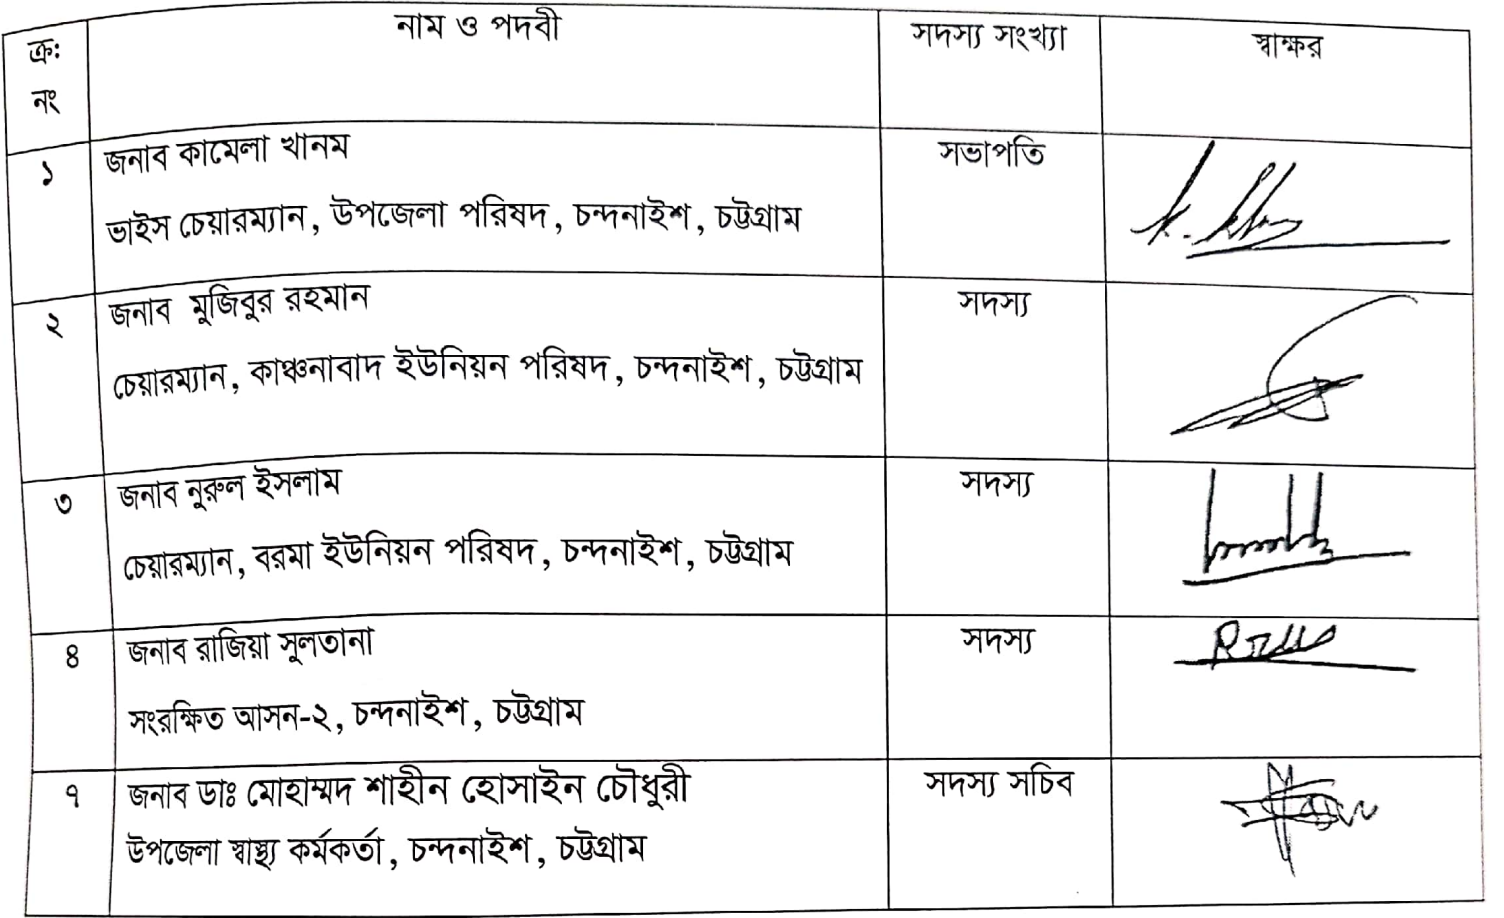 ক্রঃ নং নাম ও পদবী সদস্য সংখ্যা স্বাক্ষর
১ জনাব কামেলা খানম সভাপতি
ভাইস চেয়ারম্যান, উপজেলা পরিষদ, চন্দনাইশ, চট্টগ্রাম
২ জনাব মুজিবুর রহমান সদস্য
চেয়ারম্যান, কাঞ্চনাবাদ ইউনিয়ন পরিষদ, চন্দনাইশ, চট্টগ্রাম
৩ জনাব নুরুল ইসলাম সদস্য
চেয়ারম্যান, বরমা ইউনিয়ন পরিষদ, চন্দনাইশ, চট্টগ্রাম
৪ জনাব রাজিয়া সুলতানা সদস্য
সংরক্ষিত আসন-২, চন্দনাইশ, চট্টগ্রাম
৭ জনাব ডাঃ মোহাম্মদ শাহীন হোসাইন চৌধুরী সদস্য সচিব
উপজেলা স্বাস্থ্য কর্মকর্তা, চন্দনাইশ, চট্টগ্রাম